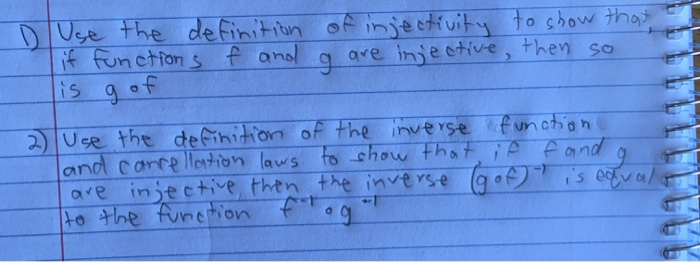 1) Use the definition of injectivity to show that,
if functions f and g are injective, then so
is g∘f
2) Use the definition of the inverse function
and cancellation laws to show that, if f and g
are injective, then the inverse (g∘f)⁻¹ is equal
to the function f⁻¹∘g⁻¹